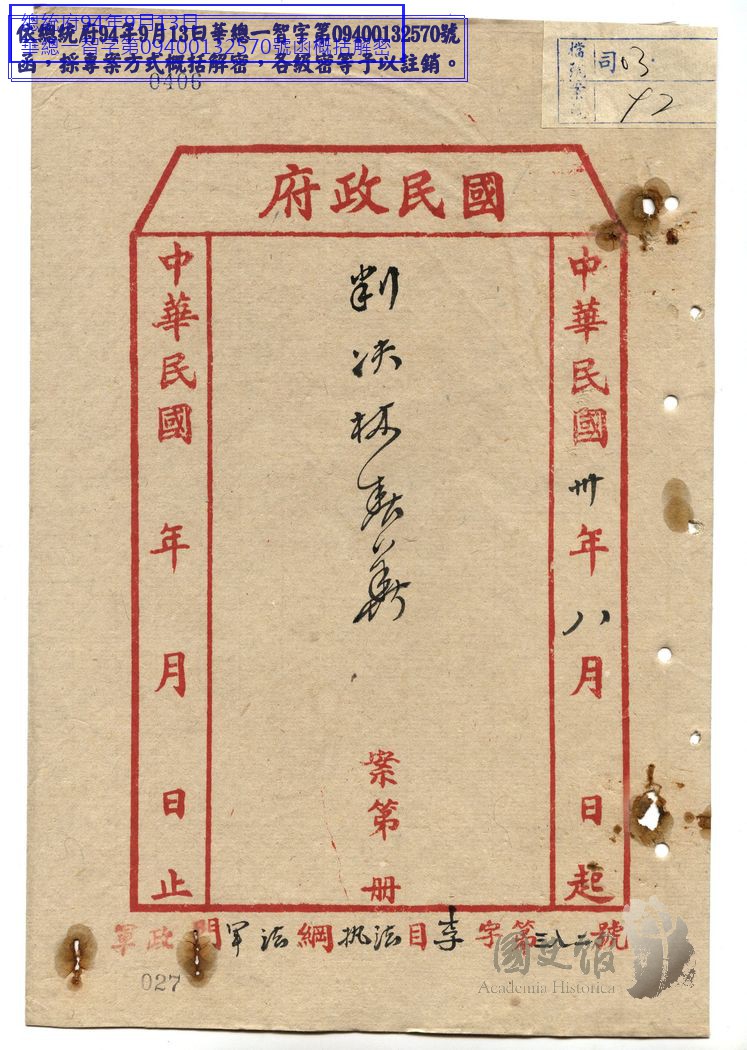 總統府94年9月13日
華總一智字第09400132570號函概括解密
依總統府94年9月13日華總一智字第09400132570號
函,採專案方式概括解密,各級密等予以註銷。
0406
檔號
司03
42
國民政府
中華民國卅年八月 日起
判決林
案第 冊
中華民國 年 月 日止
軍政門軍法綱執法目李字第三八二號
國史館
Academia Historica
027